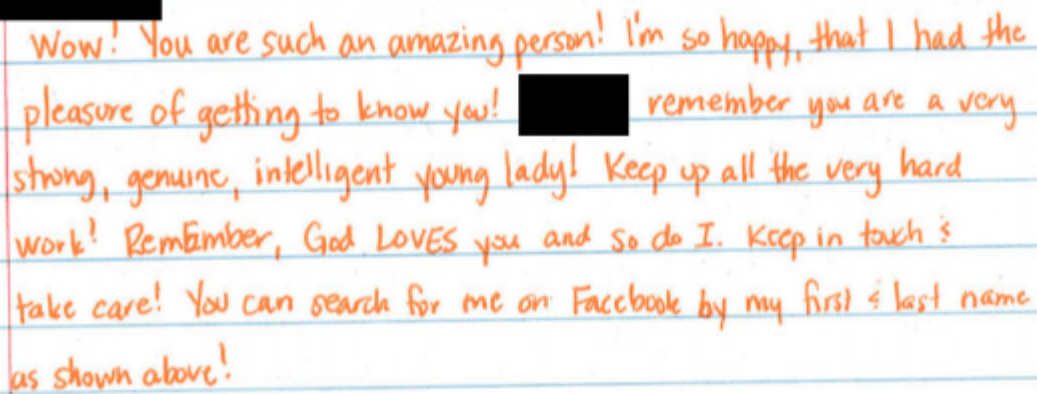 Wow! You are such an amazing person! I'm so happy, that I had the
pleasure of getting to know you! remember you are a very
strong, genuine, intelligent young lady! Keep up all the very hard
work! RemEmber, God LOVES you and so do I. Keep in touch &
take care! You can search for me on Facebook by my first & last name
as shown above!